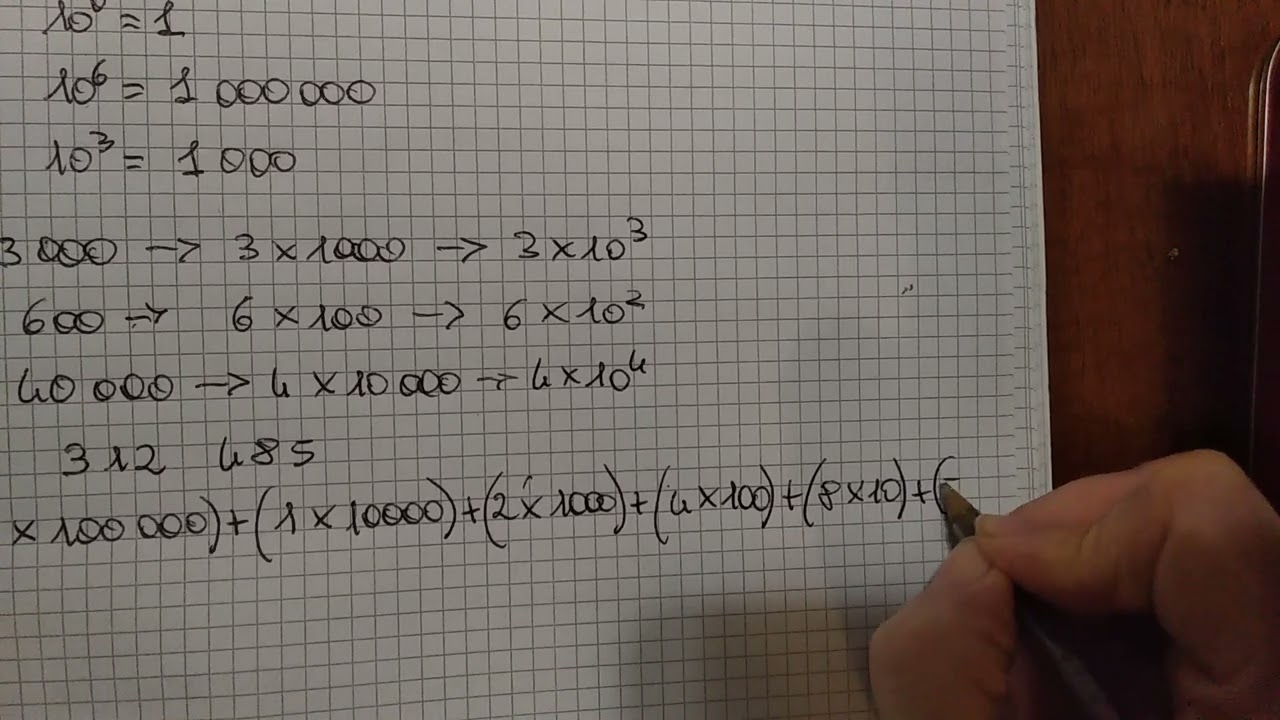 10⁰ = 1
10⁶ = 1 000 000
10³ = 1 000
3 000 → 3 × 1000 → 3 × 10³
600 → 6 × 100 → 6 × 10²
40 000 → 4 × 10 000 → 4 × 10⁴
312 485
× 100 000) + (1 × 10000) + (2 × 1000) + (4 × 100) + (8 × 10) + (